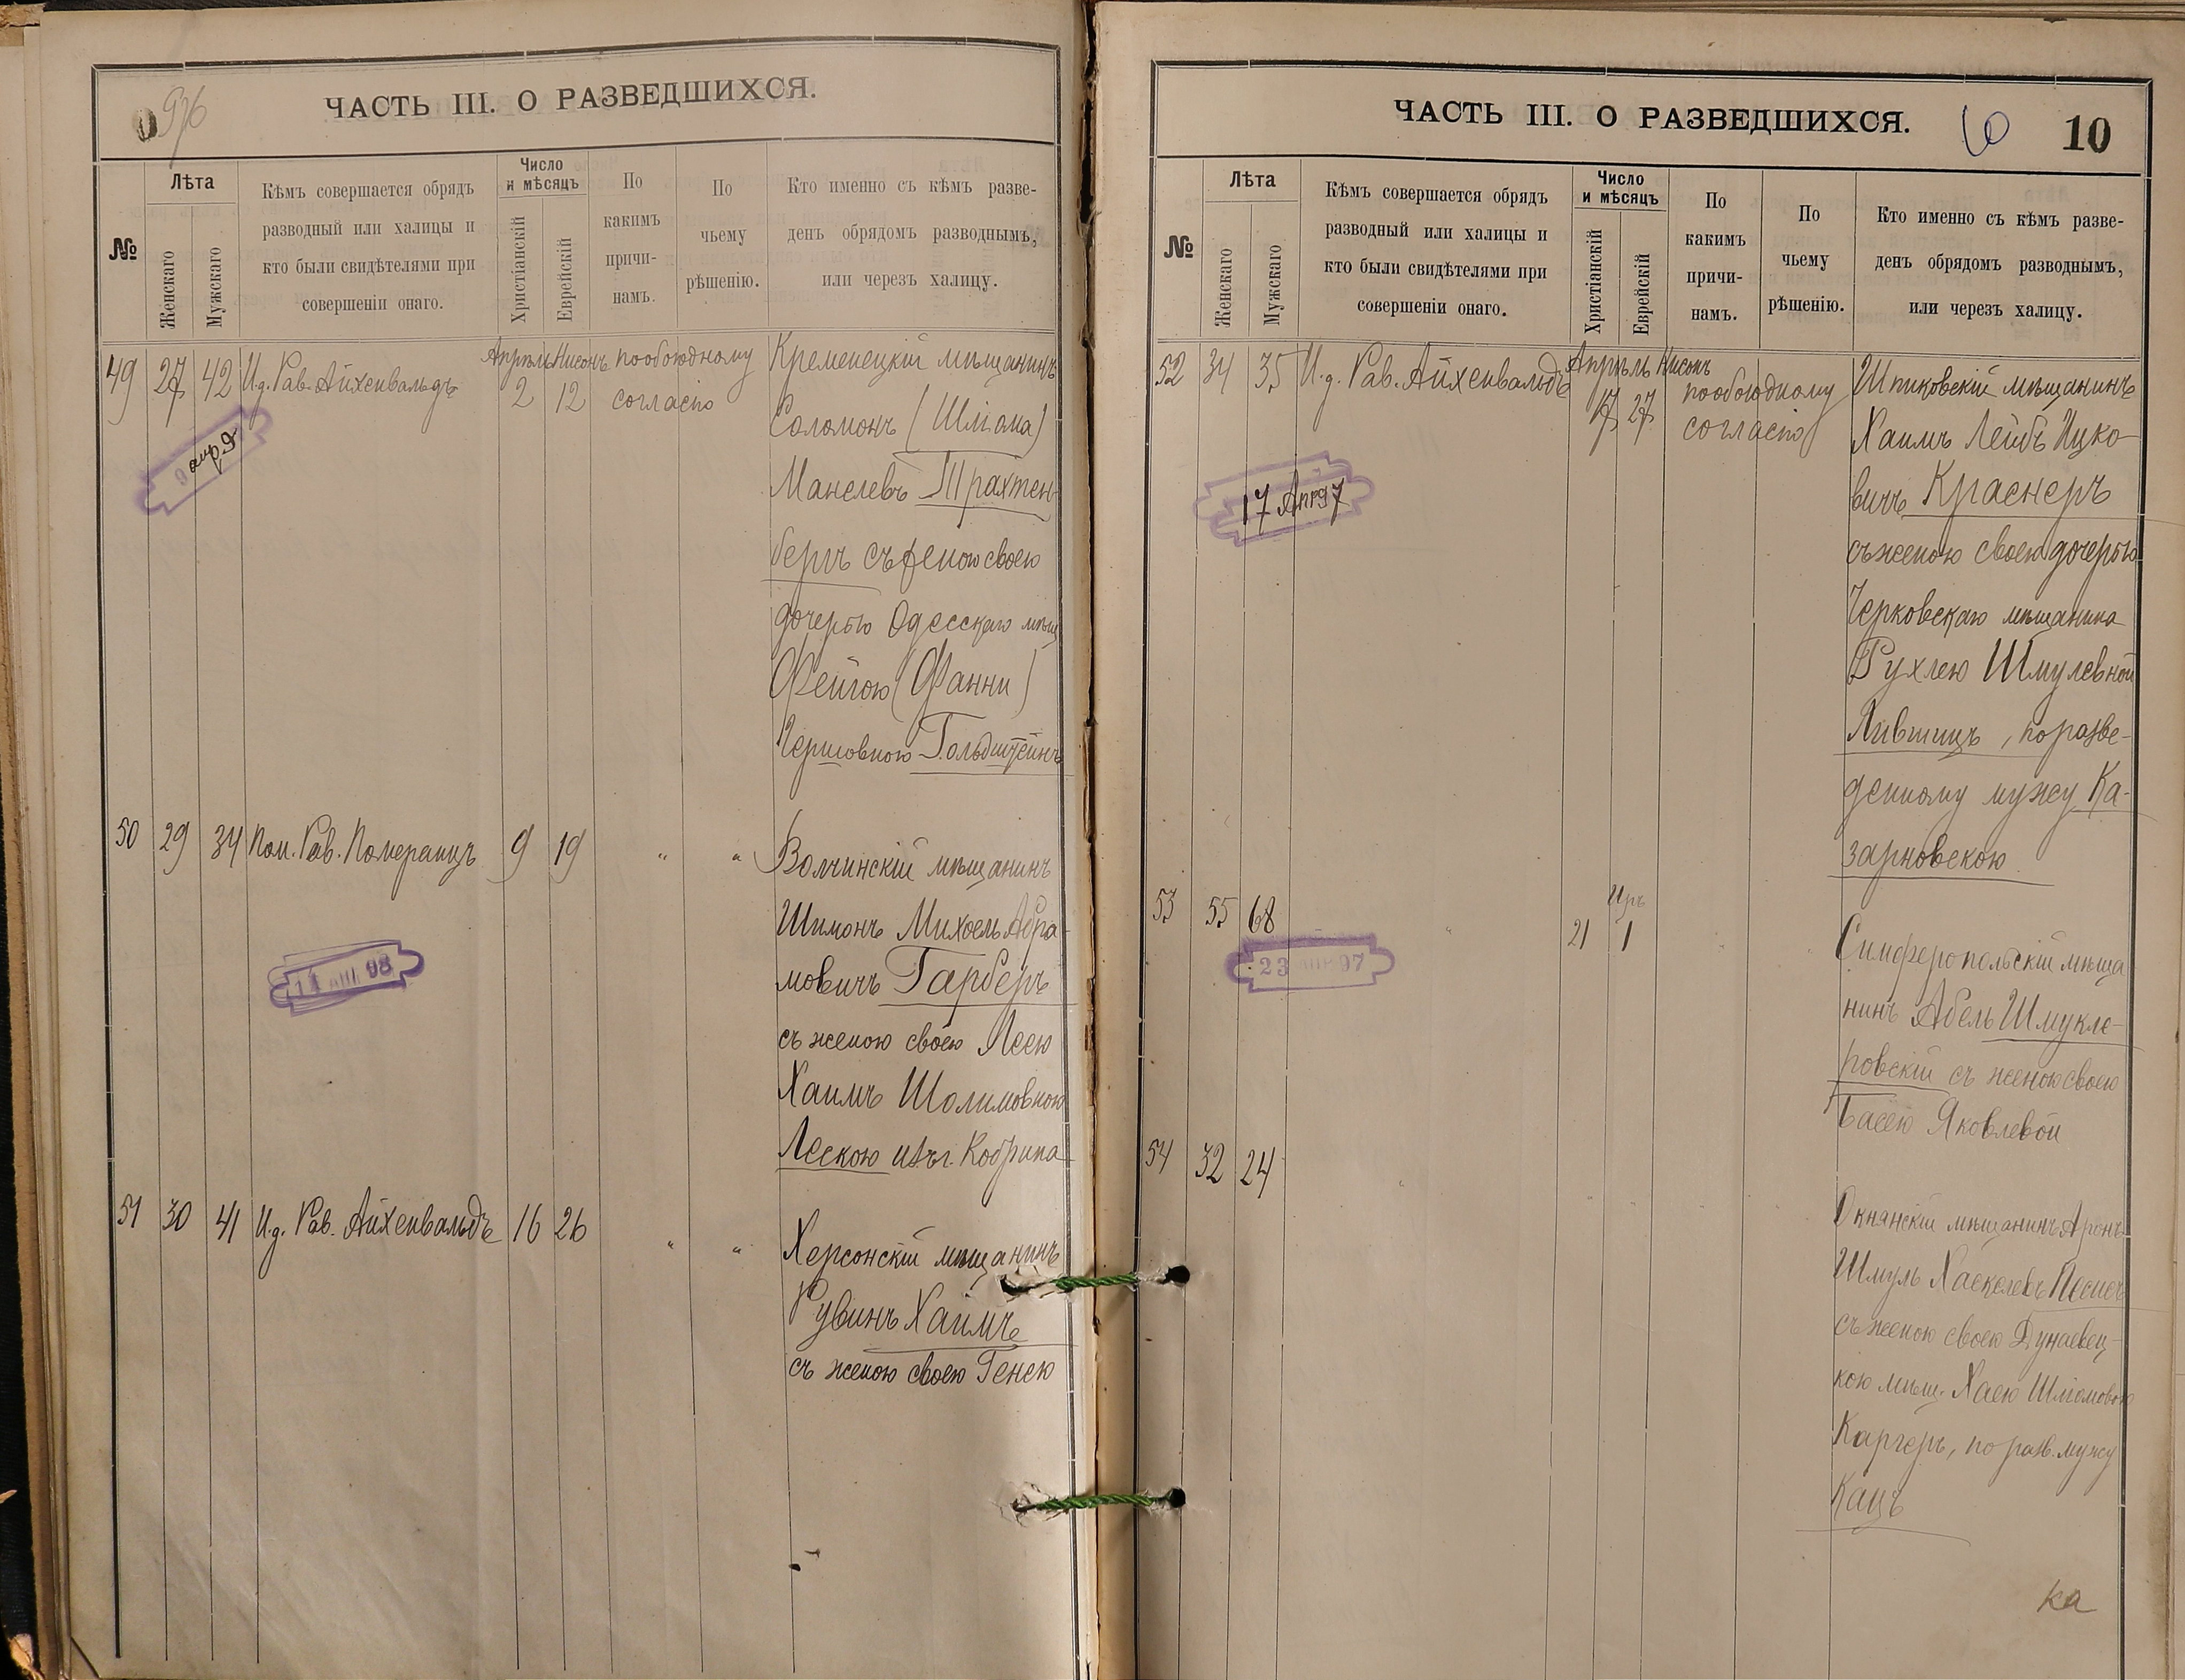 976
ЧАСТЬ III. О РАЗВЕДШИХСЯ.
№
Лѣта
Женскаго
Мужскаго
Кѣмъ совершается обрядъ
разводный или халицы и
кто были свидѣтелями при
совершеніи онаго.
Число
и мѣсяцъ
Христіанскій
Еврейскій
По
какимъ
причи-
намъ.
По
чьему
рѣшенію.
Кто именно съ кѣмъ разве-
денъ обрядомъ разводнымъ,
или черезъ халицу.
49 27 42 И.д. Рав. Айхенвальдъ
Апрѣль Нисонъ
2 12
пообоюдному
согласію
Кременецкій мѣщанинъ
Соломонъ (Шліома)
Манелевъ Трахтен-
бергъ съ женою своею
дочерью Одесскаго мѣщ
Фейгою (Фанни)
Гершовною Гольдштейнъ
50 29 34 Пом. Рав. Померанцъ 9 19 " "
Волчинскій мѣщанинъ
Шимонъ Михоель Абра-
мовичъ Гарберъ
съ женою своею Леею
Хаимъ Шолимовною
Лескою изъ г. Кобрина
51 30 41 И.д. Рав. Айхенвальдъ 16 26 " "
Херсонскій мѣщанинъ
Рувинъ Хаимъ
съ женою своею Генею
ЧАСТЬ III. О РАЗВЕДШИХСЯ.
10
10
№
Лѣта
Женскаго
Мужскаго
Кѣмъ совершается обрядъ
разводный или халицы и
кто были свидѣтелями при
совершеніи онаго.
Число
и мѣсяцъ
Христіанскій
Еврейскій
По
какимъ
причи-
намъ.
По
чьему
рѣшенію.
Кто именно съ кѣмъ разве-
денъ обрядомъ разводнымъ,
или черезъ халицу.
52 34 35 И.д. Рав. Айхенвальдъ
Апрѣль Нисонъ
17 27
пообоюдному
согласію
17 Апр 97
Шпиковскій мѣщанинъ
Хаимъ Лейбъ Ицко-
вичъ Краснеръ
съ женою своею дочерью
Черковскаго мѣщанина
Рухлею Шмулевной
Лившицъ, по разве-
денному мужу Ка-
зарновскою
53 55 68 " 21 1
Иръ
23 97
Симферопольскій мѣща
нинъ Абель Шмукле-
ровскій съ женою своею
Басею Яковлевой
54 32 24 "
Окнянскій мѣщанинъ Аронъ
Шмуль Хаскелевъ
съ женою своею Дунаевец-
кою мѣщ. Хаею Шліомовою
Каргеръ, по разв. мужу
Кацъ
ка